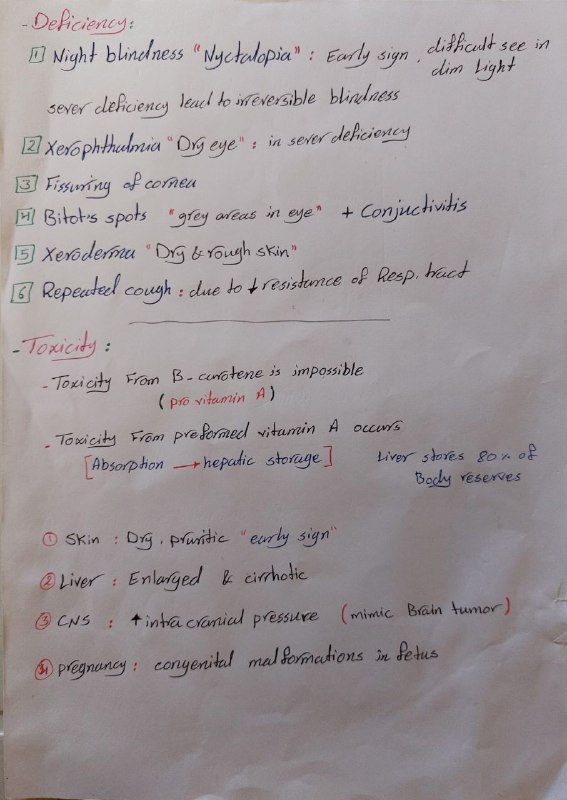 - Deficiency:
1 Night blindness "Nyctalopia" : Early sign , difficult see in dim Light
sever deficiency lead to irreversible blindness
2 Xerophthalmia "Dry eye" : in sever deficiency
3 Fissuring of cornea
4 Bitot's spots "grey areas in eye" + Conjuctivitis
5 Xeroderma "Dry & rough skin"
6 Repeated cough : due to ↓ resistance of Resp. tract
- Toxicity :
- Toxicity From B-carotene is impossible
(pro vitamin A)
- Toxicity From preformed vitamin A occurs
[Absorption → hepatic storage]
Liver stores 80% of
Body reserves
1 Skin : Dry, pruritic "early sign"
2 Liver : Enlarged & cirrhotic
3 CNS : ↑ intra cranial pressure (mimic Brain tumor)
4 pregnancy : congenital malformations in fetus